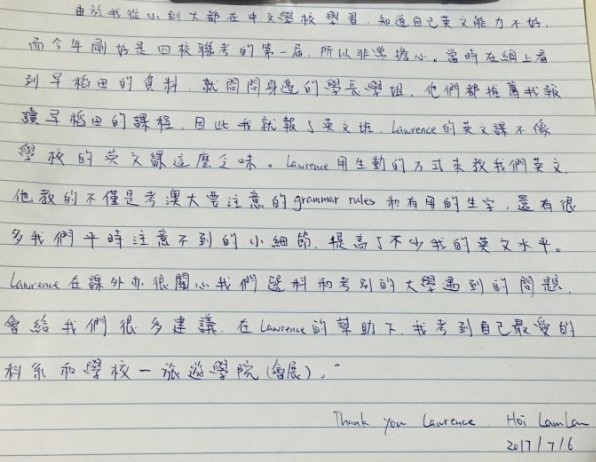 由於我從小到大都在中文學校學習,知道自己英文能力不好,
而今年剛好是四校聯考的第一屆,所以非常擔心。當時在網上看
到早稻田的資料,就問問身邊的學長學姐,他們都推薦我報
讀早稻田的課程,因此我就報了英文班,Lawrence的英文課不像
學校的英文課這麼乏味。Lawrence用生動的方式來教我們英文,
他教的不僅是考澳大要注意的grammar rules和有用的生字,還有很
多我們平時注意不到的小細節,提高了不少我的英文水平。
Lawrence在課外亦很關心我們選科和考別的大學遇到的問題,
會給我們很多建議,在Lawrence的幫助下,我考到自己最愛的
科系和學校-旅遊學院(會展)。
Thank you Lawrence. Hoi Lam Lam
2017/7/6